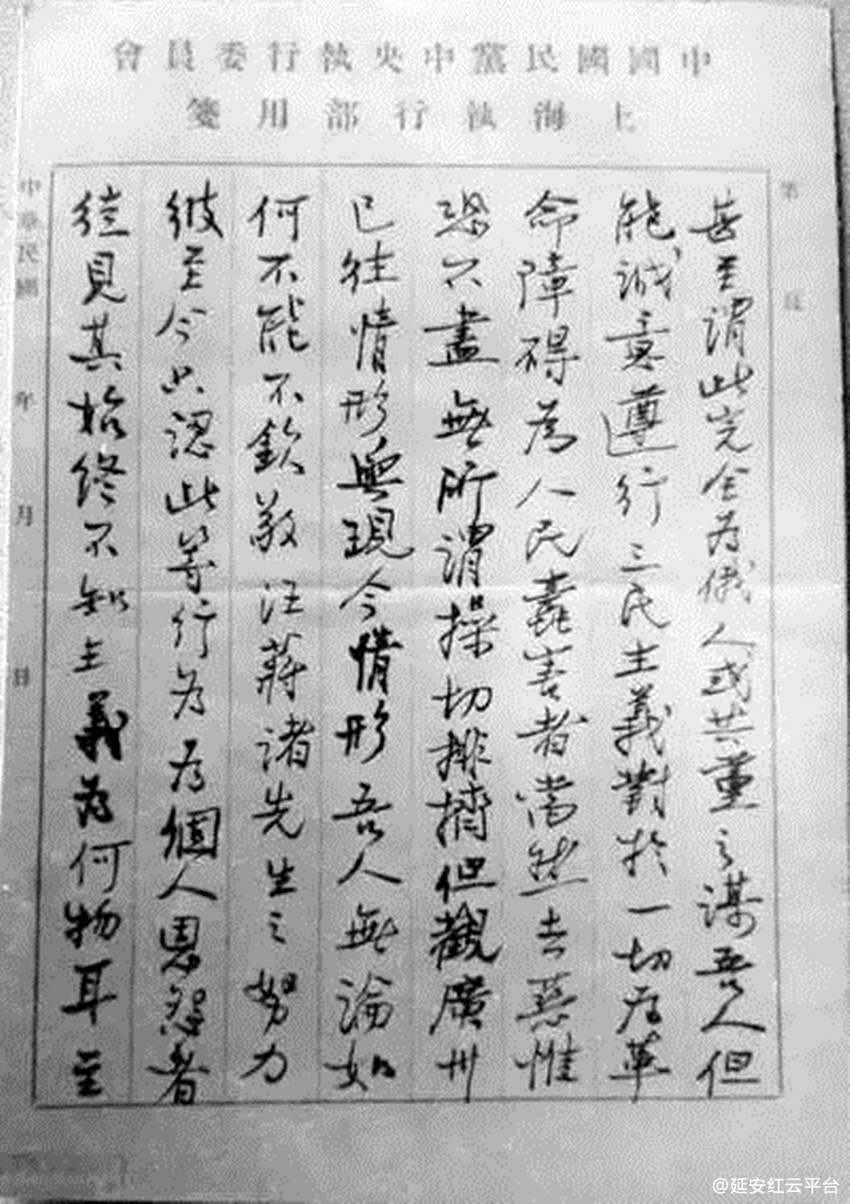 中國國民黨中央執行委員會
上海執行部用箋
第 頁
甚至謂此完全為俄人或共產之謀吾人但
能誠意遵行三民主義對於一切為革
命障碍為人民蠹害者當然去惡惟
恐不盡無所謂操切排擠但觀廣州
已往情形與現今情形吾人無論如
何不能不欽敬汪蔣諸先生之努力
彼至今只認此等行為為個人恩怨者
徒見其始終不知主義為何物耳至
中華民國 年 月 日
@延安红云平台